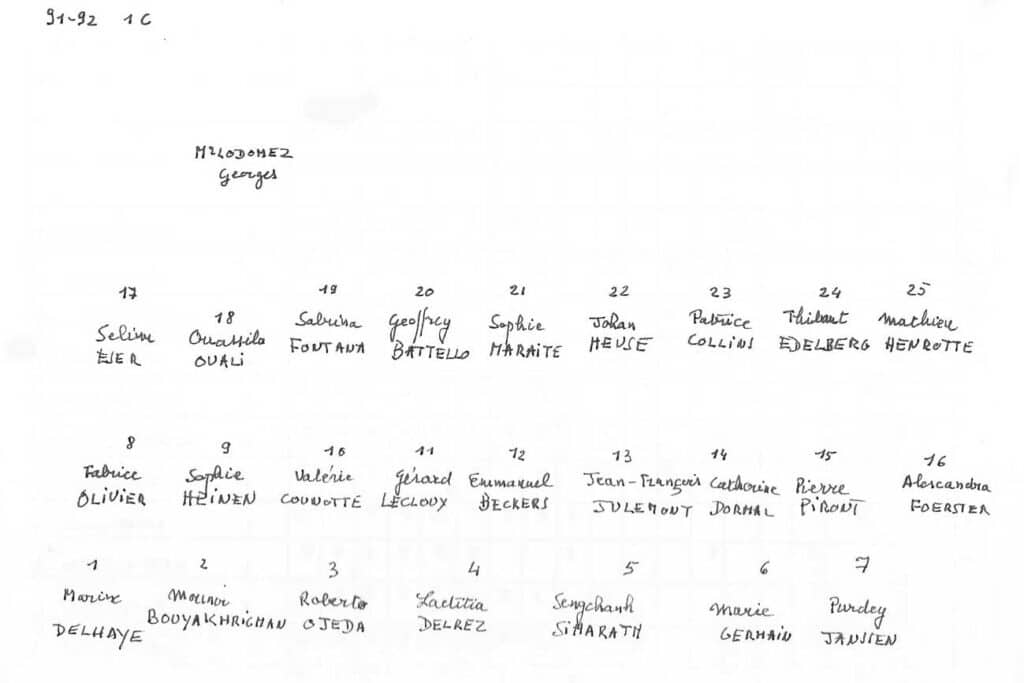 91-92 1C
MILODOMEZ
Georges
17 18 19 20 21 22 23 24 25
Selim Ouassila Sabrina Geoffrey Sophie Johan Patrice Thibaut Mathieu
ESER OUALI FONTANA BATTELLO MARAITE MEUSE COLLINS EDELBERG HENROTTE
8 9 10 11 12 13 14 15 16
Fabrice Sophie Valérie Gérard Emmanuel Jean-François Catherine Pierre Alexandra
OLIVIER HEINEN COUNOTTE LECLOUX BECKERS JULEMONT DORMAL PIRONT FOERSTER
1 2 3 4 5 6 7
Mounir Roberto Laetitia Sengchanh Marie Purdey
DELHAYE BOUYAKHRICHAN OJEDA DELREZ SIHARATH GERMAIN JANSSEN